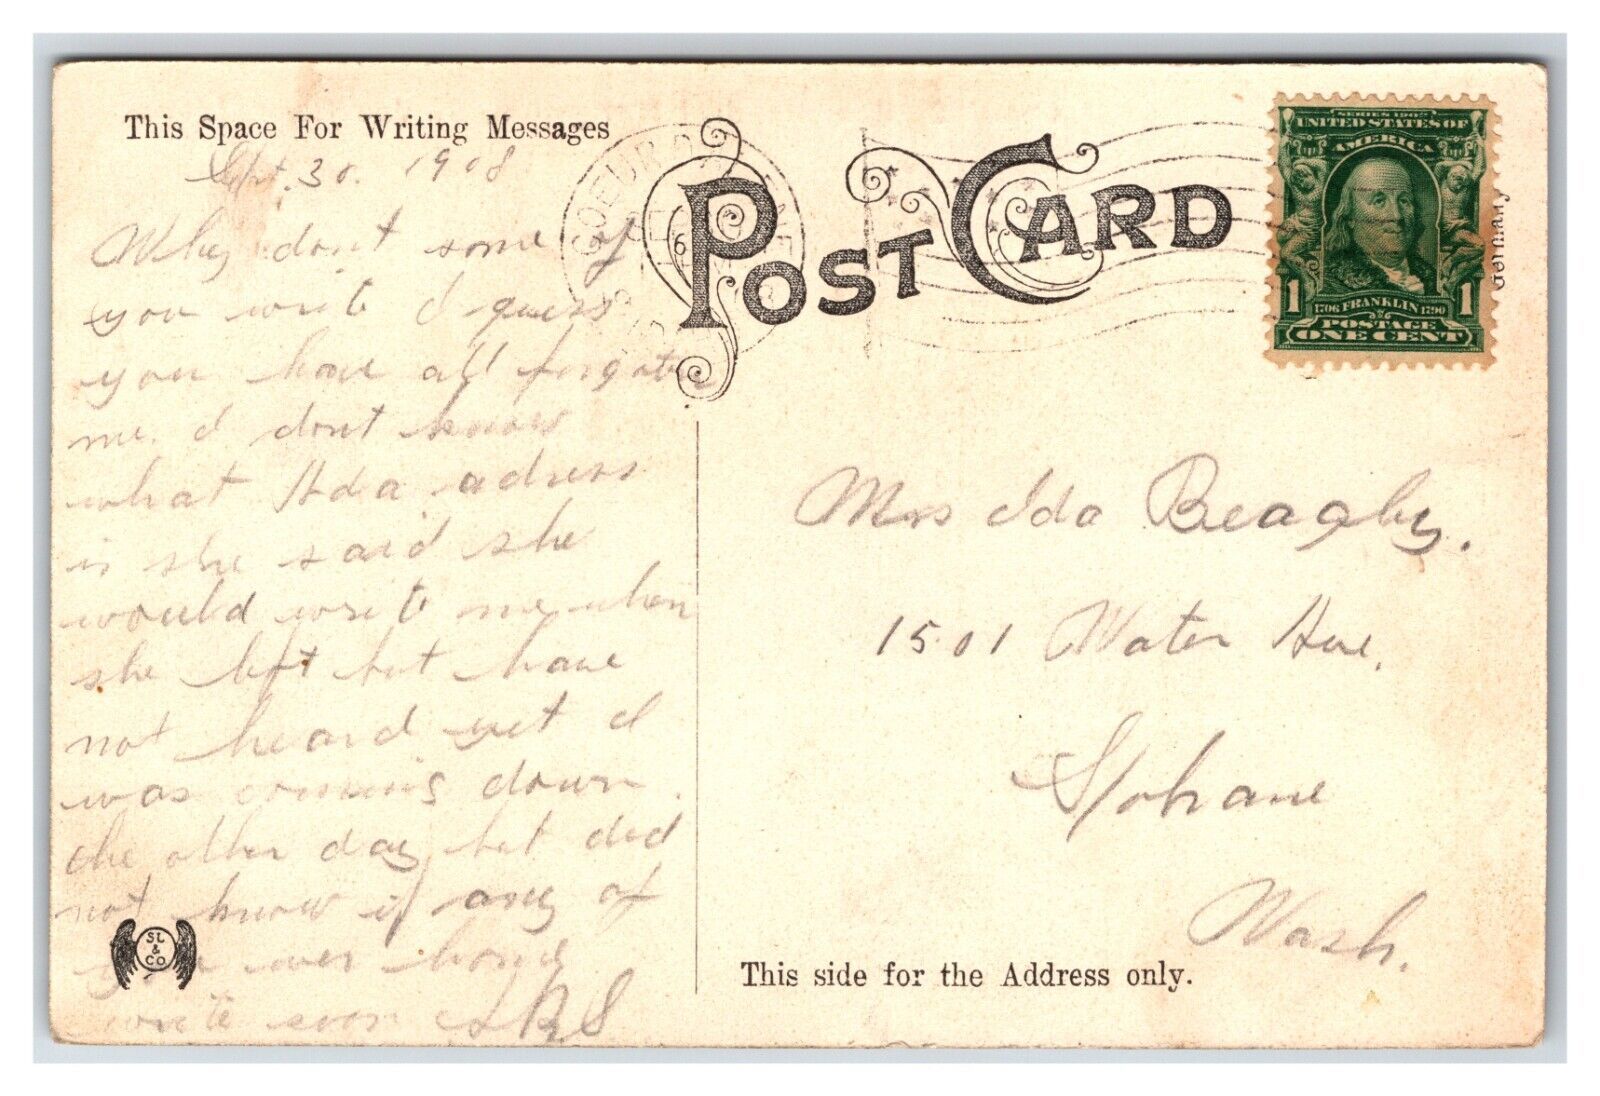 This Space For Writing Messages
Sept. 30. 1908
Why dont some of
you write I guess
you have all forgoten
me. I dont know
what Ada adress
is she said she
would write me when
she left but have
not heard yet I
was coming down
the other day but did
not know if any of
you were home
write soon
SL
&
CO
POST CARD
COEUR D
SERIES 1902
UNITED STATES OF
AMERICA
1 FRANKLIN 1
1706 1790
POSTAGE
ONE CENT
Germany
Mrs Ida Beagby.
1501 Water Ave.
Spokane
Wash.
This side for the Address only.